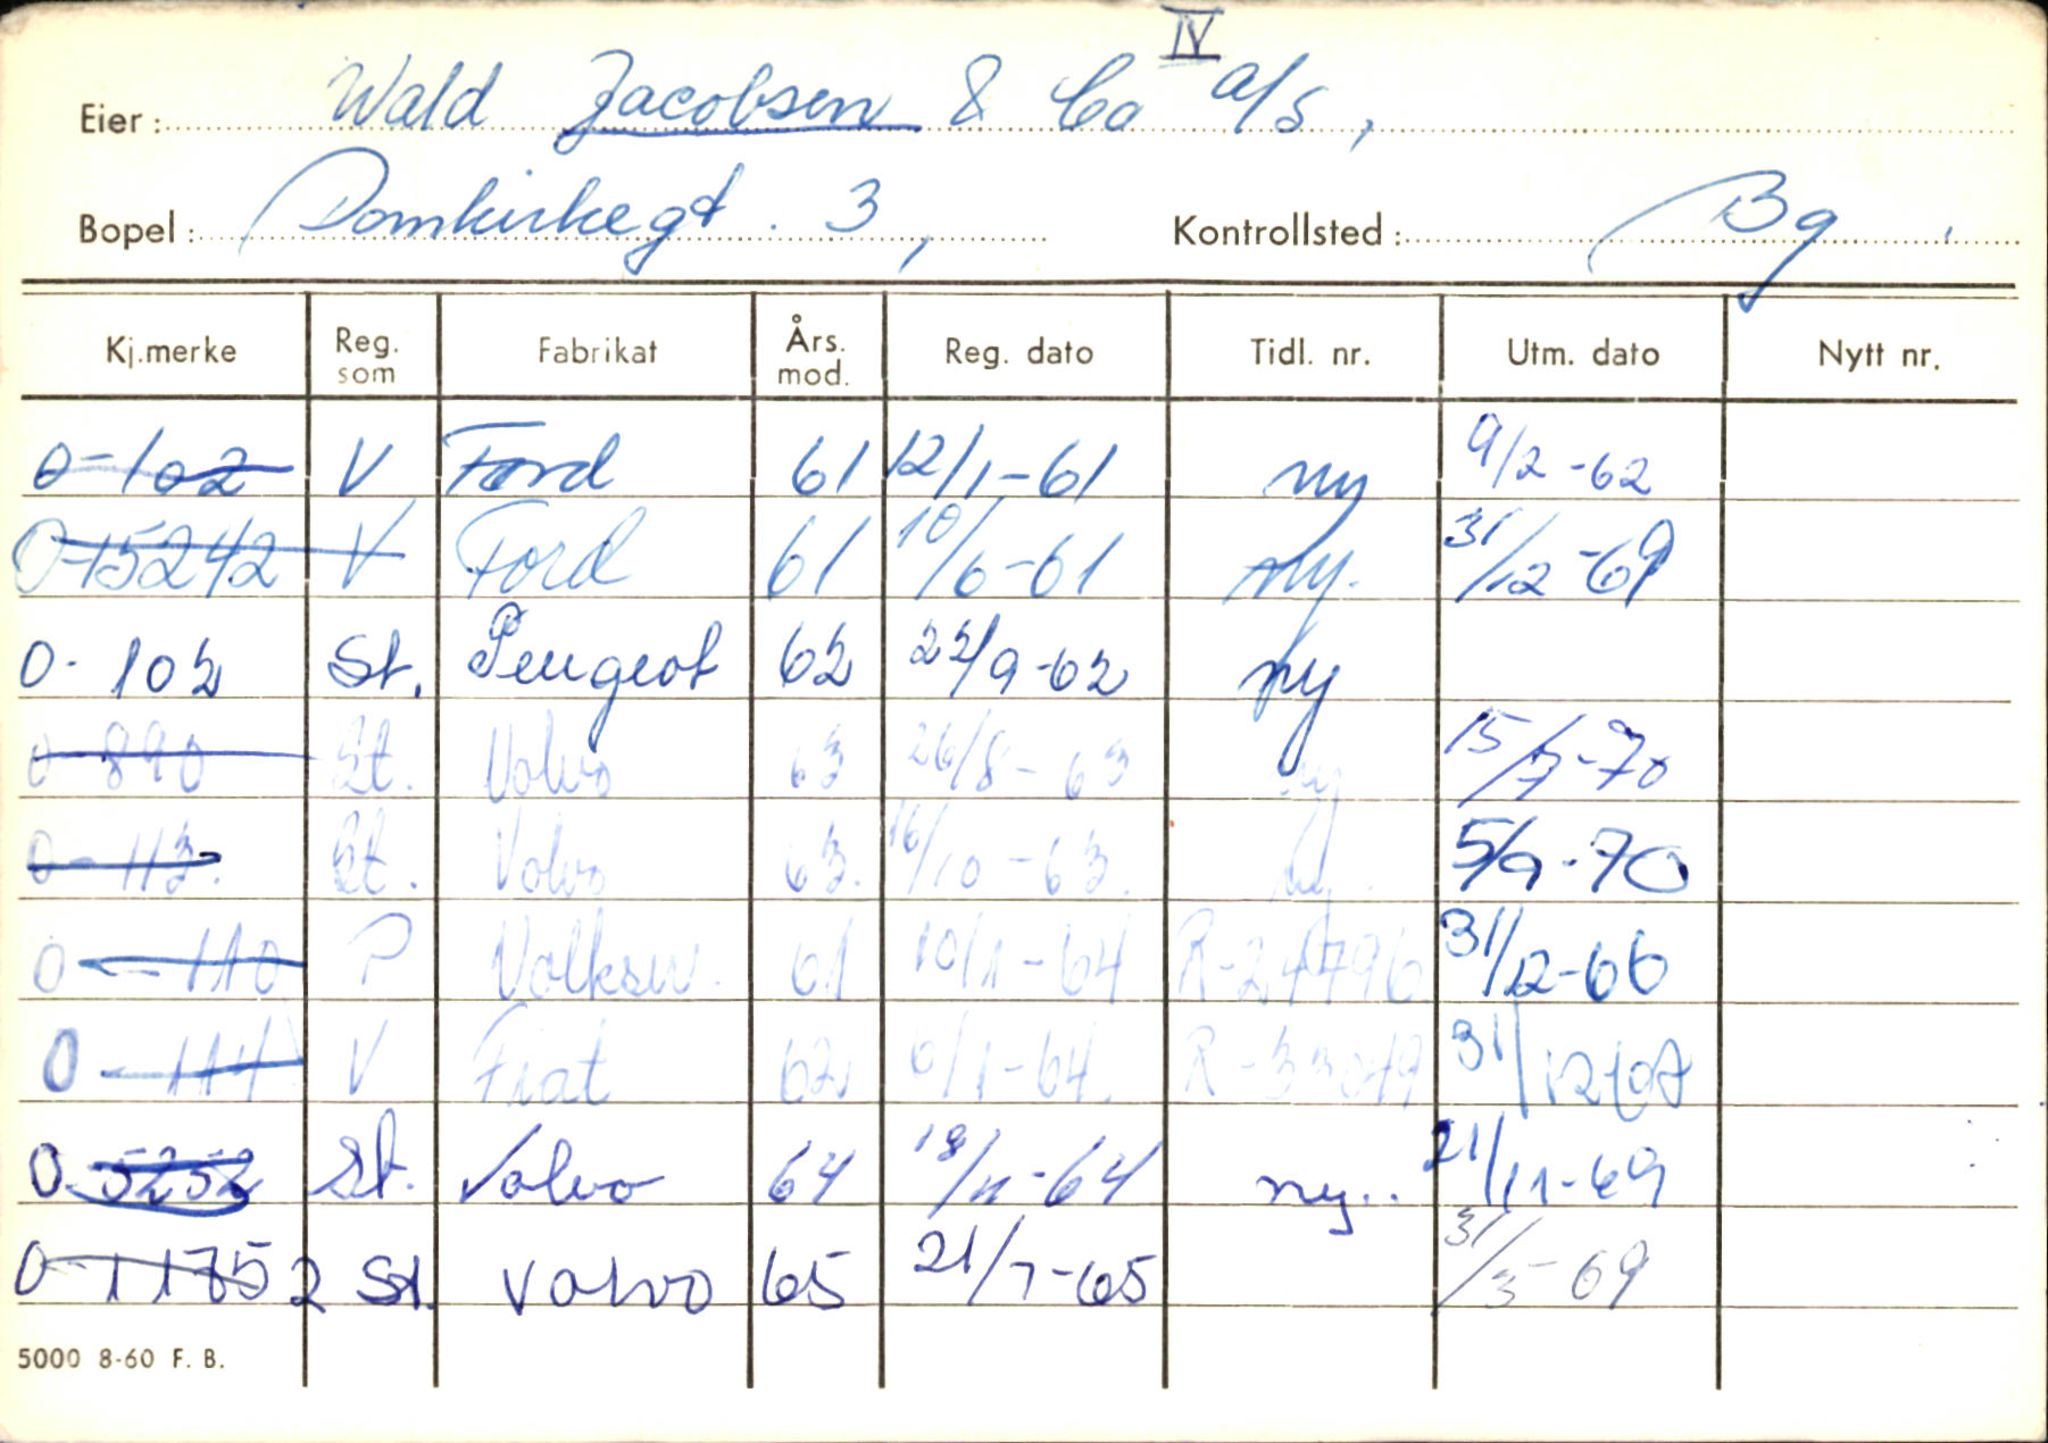 IV
Eier: Wald Jacobsen & Co a/s,
Bopel: Domkirkegt. 3, Kontrollsted: Bg.
Kj.merke Reg. som Fabrikat Års. mod. Reg. dato Tidl. nr. Utm. dato Nytt nr.
O-102 V Ford 61 12/1-61 ny 9/2-62
O-15242 V Ford 61 10/6-61 ny. 31/12-69
O-102 St. Peugeot 62 22/9-62 ny
O-890 St. Volvo 63 26/8-63 ny 15/7-70
O-113. St. Volvo 63. 16/10-63. ny. 5/9-70
O-110 P Volksw. 61 10/1-64 31/12-66
O-114 V Fiat 62 6/1-64. 31/12-67
O-5252 St. Volvo 64 18/11-64 ny.. 21/11-69
O-11752 St. Volvo 65 21/7-65 31/3-69
5000 8-60 F. B.